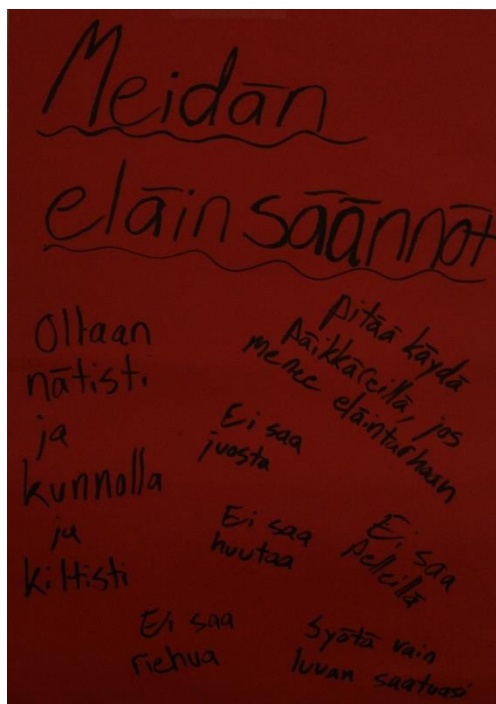 Meidän
eläinsäännöt
Oltaan
nätisti
ja
kunnolla
ja
kiltisti
pitää käydä
päikkäreillä, jos
menee eläintarhaan
Ei saa
juosta
Ei saa
huutaa
Ei saa
Pelleillä
Ei saa
riehua
Syötä vain
luvan saatuasi